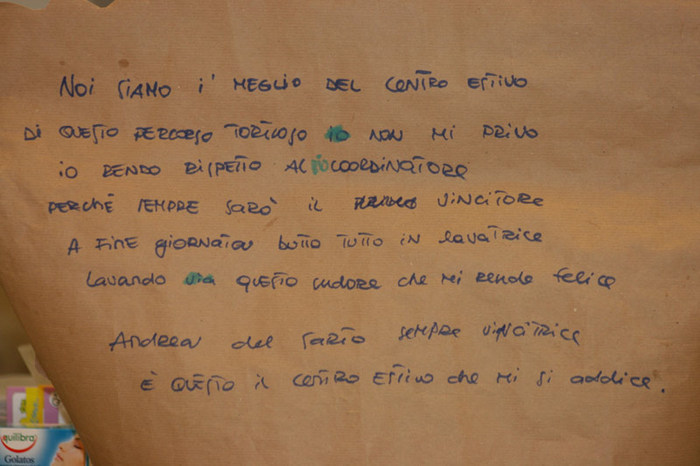 Noi siamo i' meglio del centro estivo
Di questo percorso tortuoso io non mi privo
io rendo rispetto al coordinatore
perché sempre sarò il vincitore
A fine giornata butto tutto in lavatrice
Lavando via questo sudore che mi rende felice
Andrea del Sarto sempre vincitrice
È questo il centro estivo che mi si addice.
equilibra
Golatos